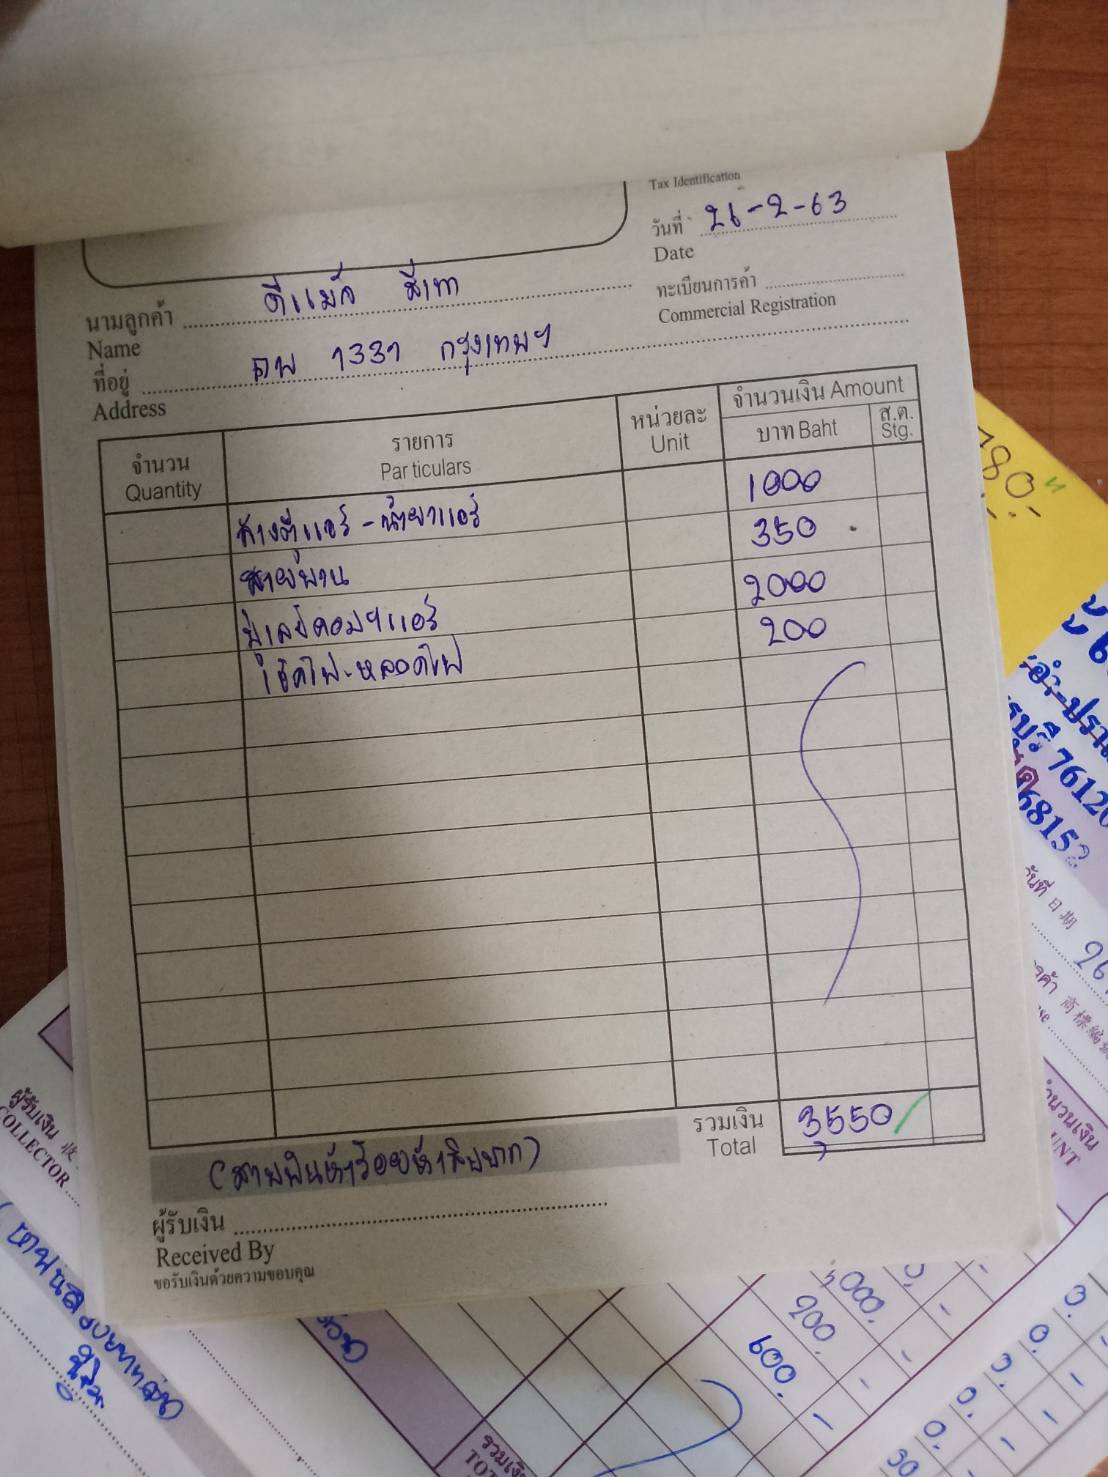 Tax Identification
วันที่ 26-2-63
Date
นามลูกค้า ดีแม็ก สีเทา
Name
ทะเบียนการค้า
Commercial Registration
ที่อยู่ ฒพ 1331 กรุงเทพฯ
Address
จำนวน รายการ หน่วยละ จำนวนเงิน Amount
Quantity Particulars Unit บาท Baht ส.ต. Stg.
ล้างตู้แอร์ - น้ำยาแอร์ 1000
สายพาน 350
มู่เลย์คอมฯแอร์ 2000
เช็คไฟ-หลอดไฟ 200
รวมเงิน 3,550
Total
(สามพันห้าร้อยห้าสิบบาท)
ผู้รับเงิน
Received By
ขอรับเงินด้วยความขอบคุณ
780.-
76120
68152
วันที่ 日期 26
商標編號
จำนวนเงิน
ผู้รับเงิน
COLLECTOR
000.
200.
600.
รวมเงิน